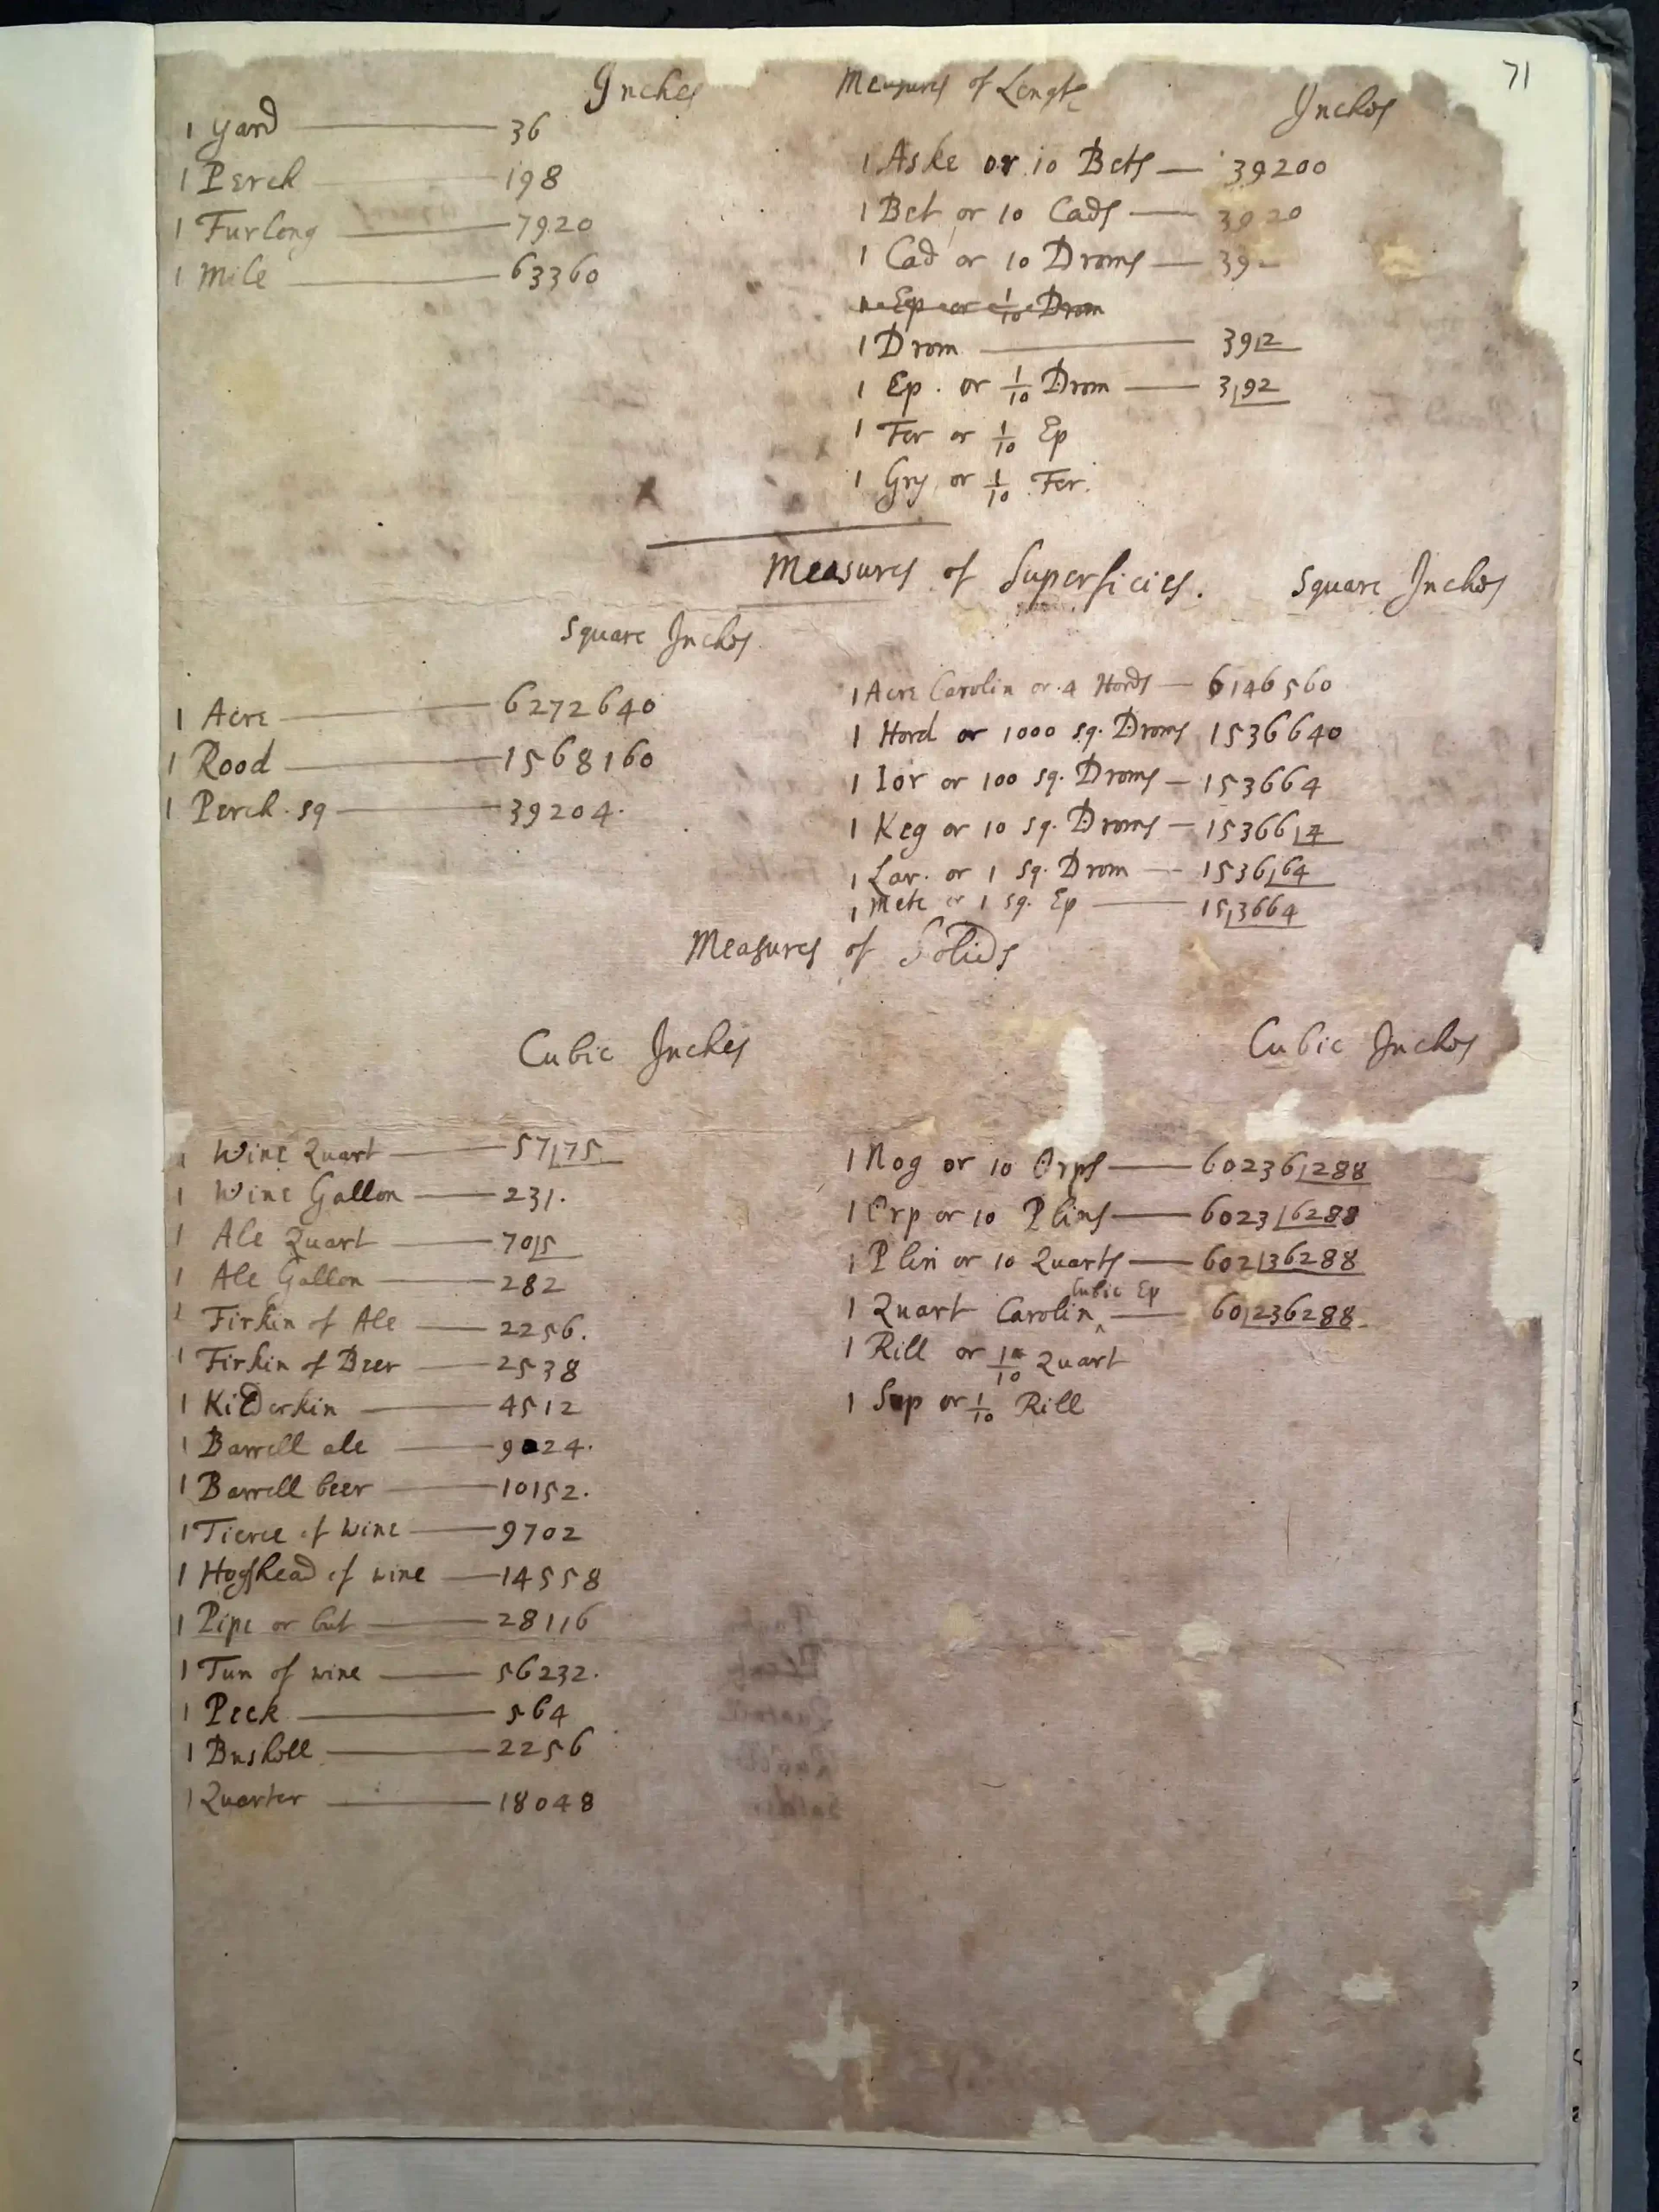 71
Inches
1 Yard — 36
1 Perch — 198
1 Furlong — 7920
1 Mile — 63360
Measures of Length
Inches
1 Aske or 10 Bets — 39200
1 Bet or 10 Cads — 3920
1 Cad or 10 Droms — 392
1 Ep or 1/10 Drom
1 Drom — 39|2
1 Ep. or 1/10 Drom — 3|92
1 Fer or 1/10 Ep
1 Gry or 1/10 Fer.
Measures of Superficies.
Square Inches
1 Acre — 6272640
1 Rood — 1568160
1 Perch. sq — 39204.
Square Inches
1 Acre Carolin or 4 Hords — 6146560
1 Hord or 1000 sq. Droms 1536640
1 Ior or 100 sq. Droms — 153664
1 Keg or 10 sq. Droms — 15366|4
1 Lav. or 1 sq. Drom — 1536|64
1 Mete or 1 sq. Ep — 15|3664
Measures of Solids
Cubic Inches
1 Wine Quart — 57|75
1 Wine Gallon — 231.
1 Ale Quart — 70|5
1 Ale Gallon — 282
1 Firkin of Ale — 2256.
1 Firkin of Beer — 2538
1 Kilderkin — 4512
1 Barrell ale — 9024.
1 Barrell beer — 10152.
1 Tierce of wine — 9702
1 Hogshead of wine — 14558
1 Pipe or but — 28116
1 Tun of wine — 56232.
1 Peck — 564
1 Bushell — 2256
1 Quarter — 18048
Cubic Inches
1 Nog or 10 Orps — 60236|288
1 Orp or 10 Plins — 6023|6288
1 Plin or 10 Quarts — 602|36288
1 Quart Carolin ^ Cubic Ep — 60|236288
1 Rill or 1/10 Quart
1 Sup or 1/10 Rill